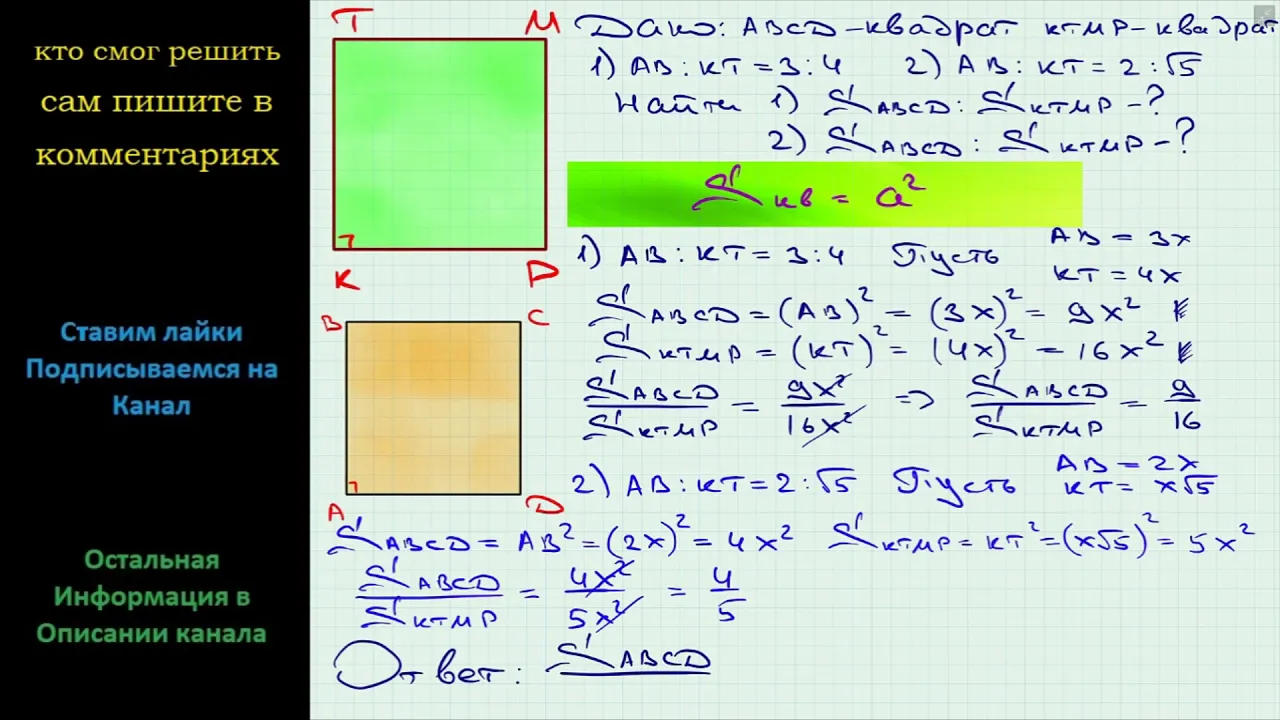 кто смог решить
сам пишите в
комментариях
Ставим лайки
Подписываемся на
Канал
Остальная
Информация в
Описании канала
T M
K P
B C
A D
Дано: ABCD-квадрат KTMP-квадрат
1) AB:KT=3:4 2) AB:KT=2:√5
Найти 1) S ABCD : S KTMP -?
2) S ABCD : S KTMP -?
S кв = a²
1) AB:KT=3:4 Пусть AB = 3x
KT = 4x
S ABCD = (AB)² = (3x)² = 9x²
S KTMP = (KT)² = (4x)² = 16x²
S ABCD / S KTMP = 9x² / 16x² => S ABCD / S KTMP = 9/16
2) AB:KT=2:√5 Пусть AB = 2x
KT = x√5
S ABCD = AB² = (2x)² = 4x² S KTMP = KT² = (x√5)² = 5x²
S ABCD / S KTMP = 4x² / 5x² = 4/5
Ответ: S ABCD